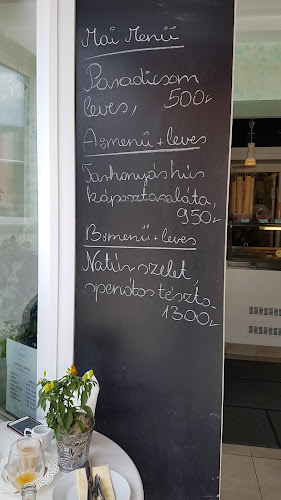 Mai Menü
Paradicsom
leves, 500.-
A:menü + leves
Tarhonyás hús
káposztasaláta,
950.-
B:menü + leves
Natúr szelet
spenótos tészta
1300.-